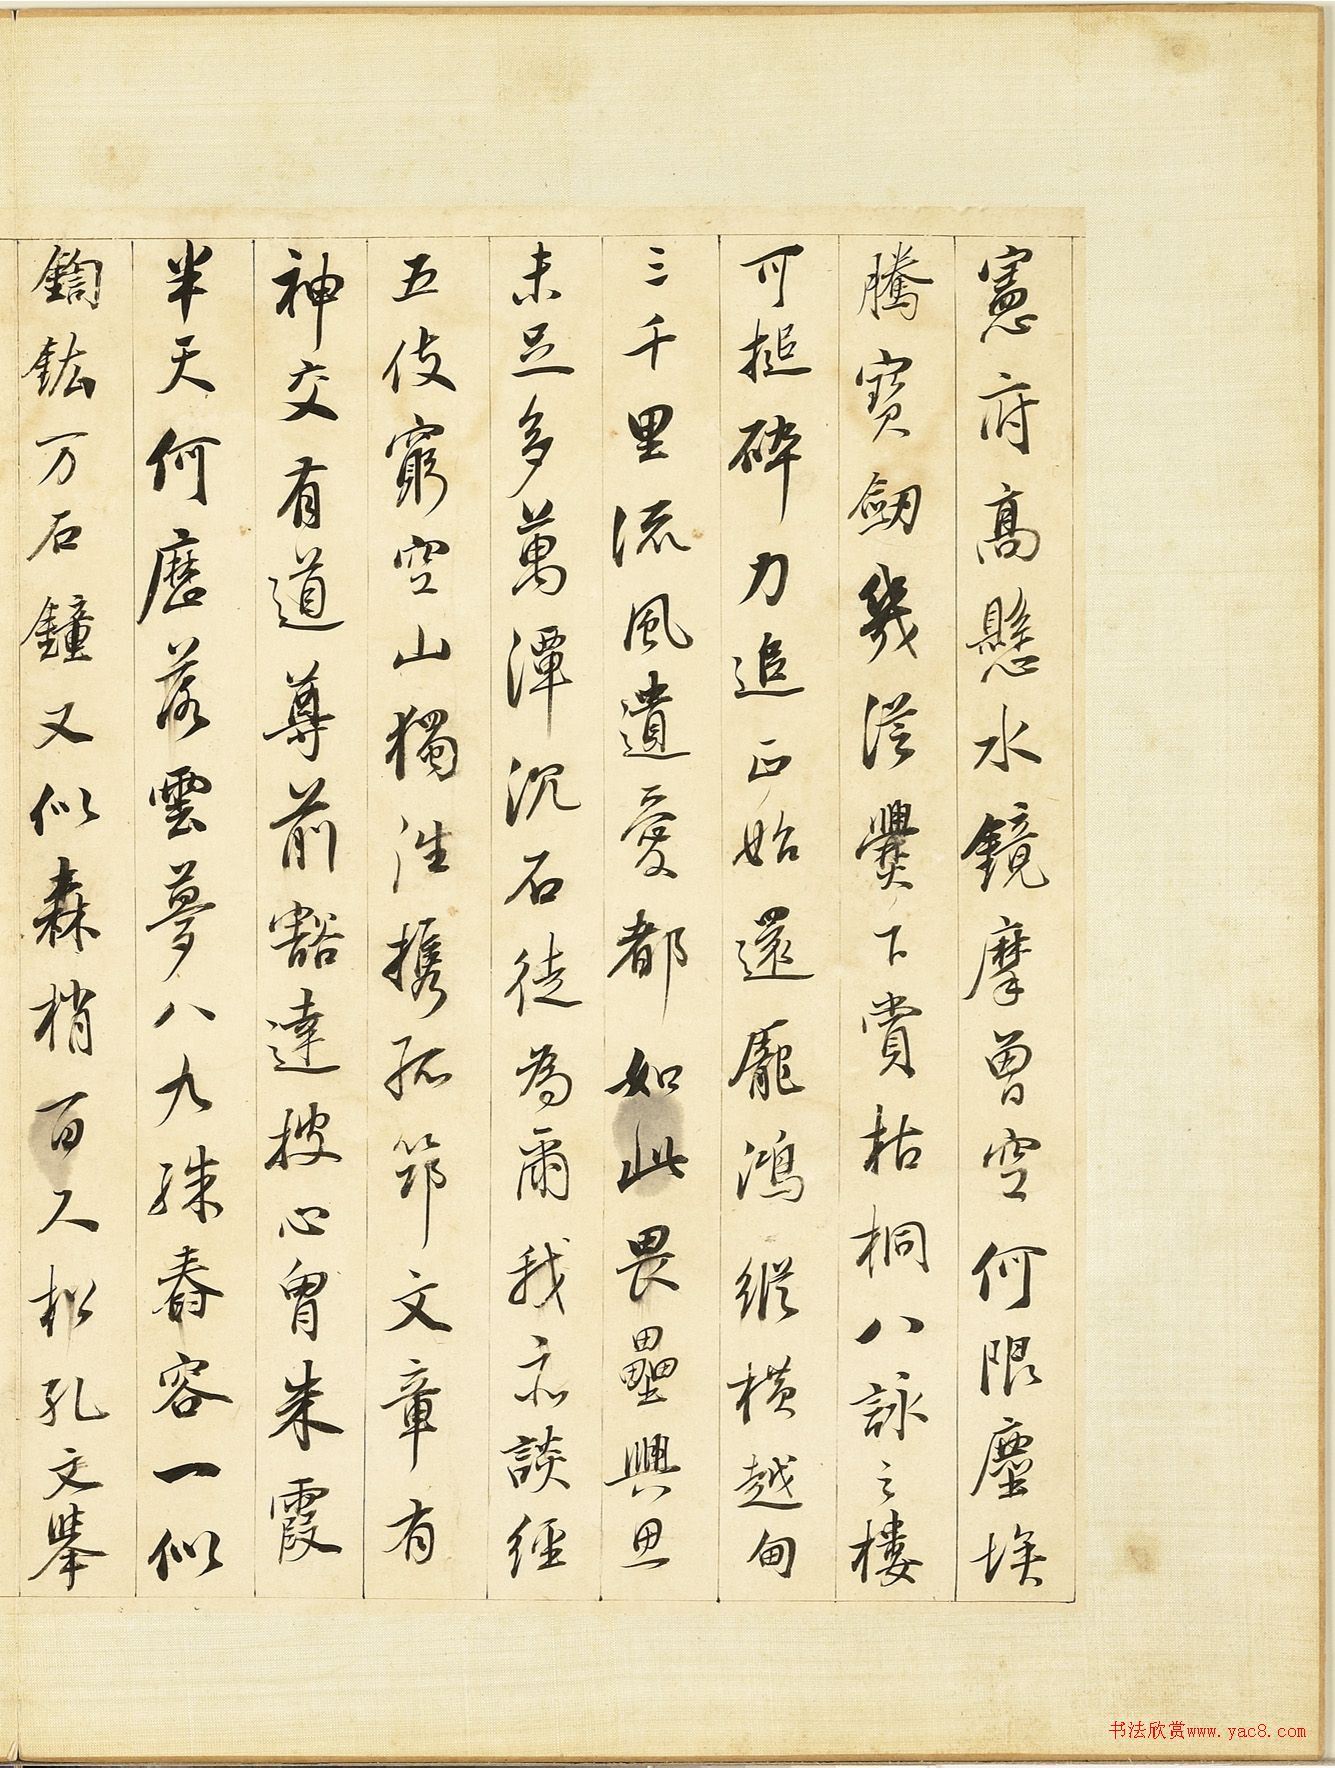 憲府高懸水鏡摩曾空何限塵埃
騰寶劔幾從爨下賞枯桐八詠之樓
可搥碎力追正始還龐鴻縱横越甸
三千里流風遺愛都如此畏壘興思
未足多萬潭沉石徒為爾我亦談經
五伎窮空山獨往攜孤筇文章有
神交有道尊前豁達披心胷朱霞
半天何歷落雲夢八九殊舂容一似
鍧鈜万石鐘又似森梢百尺松孔文舉
书法欣赏www.yac8.com